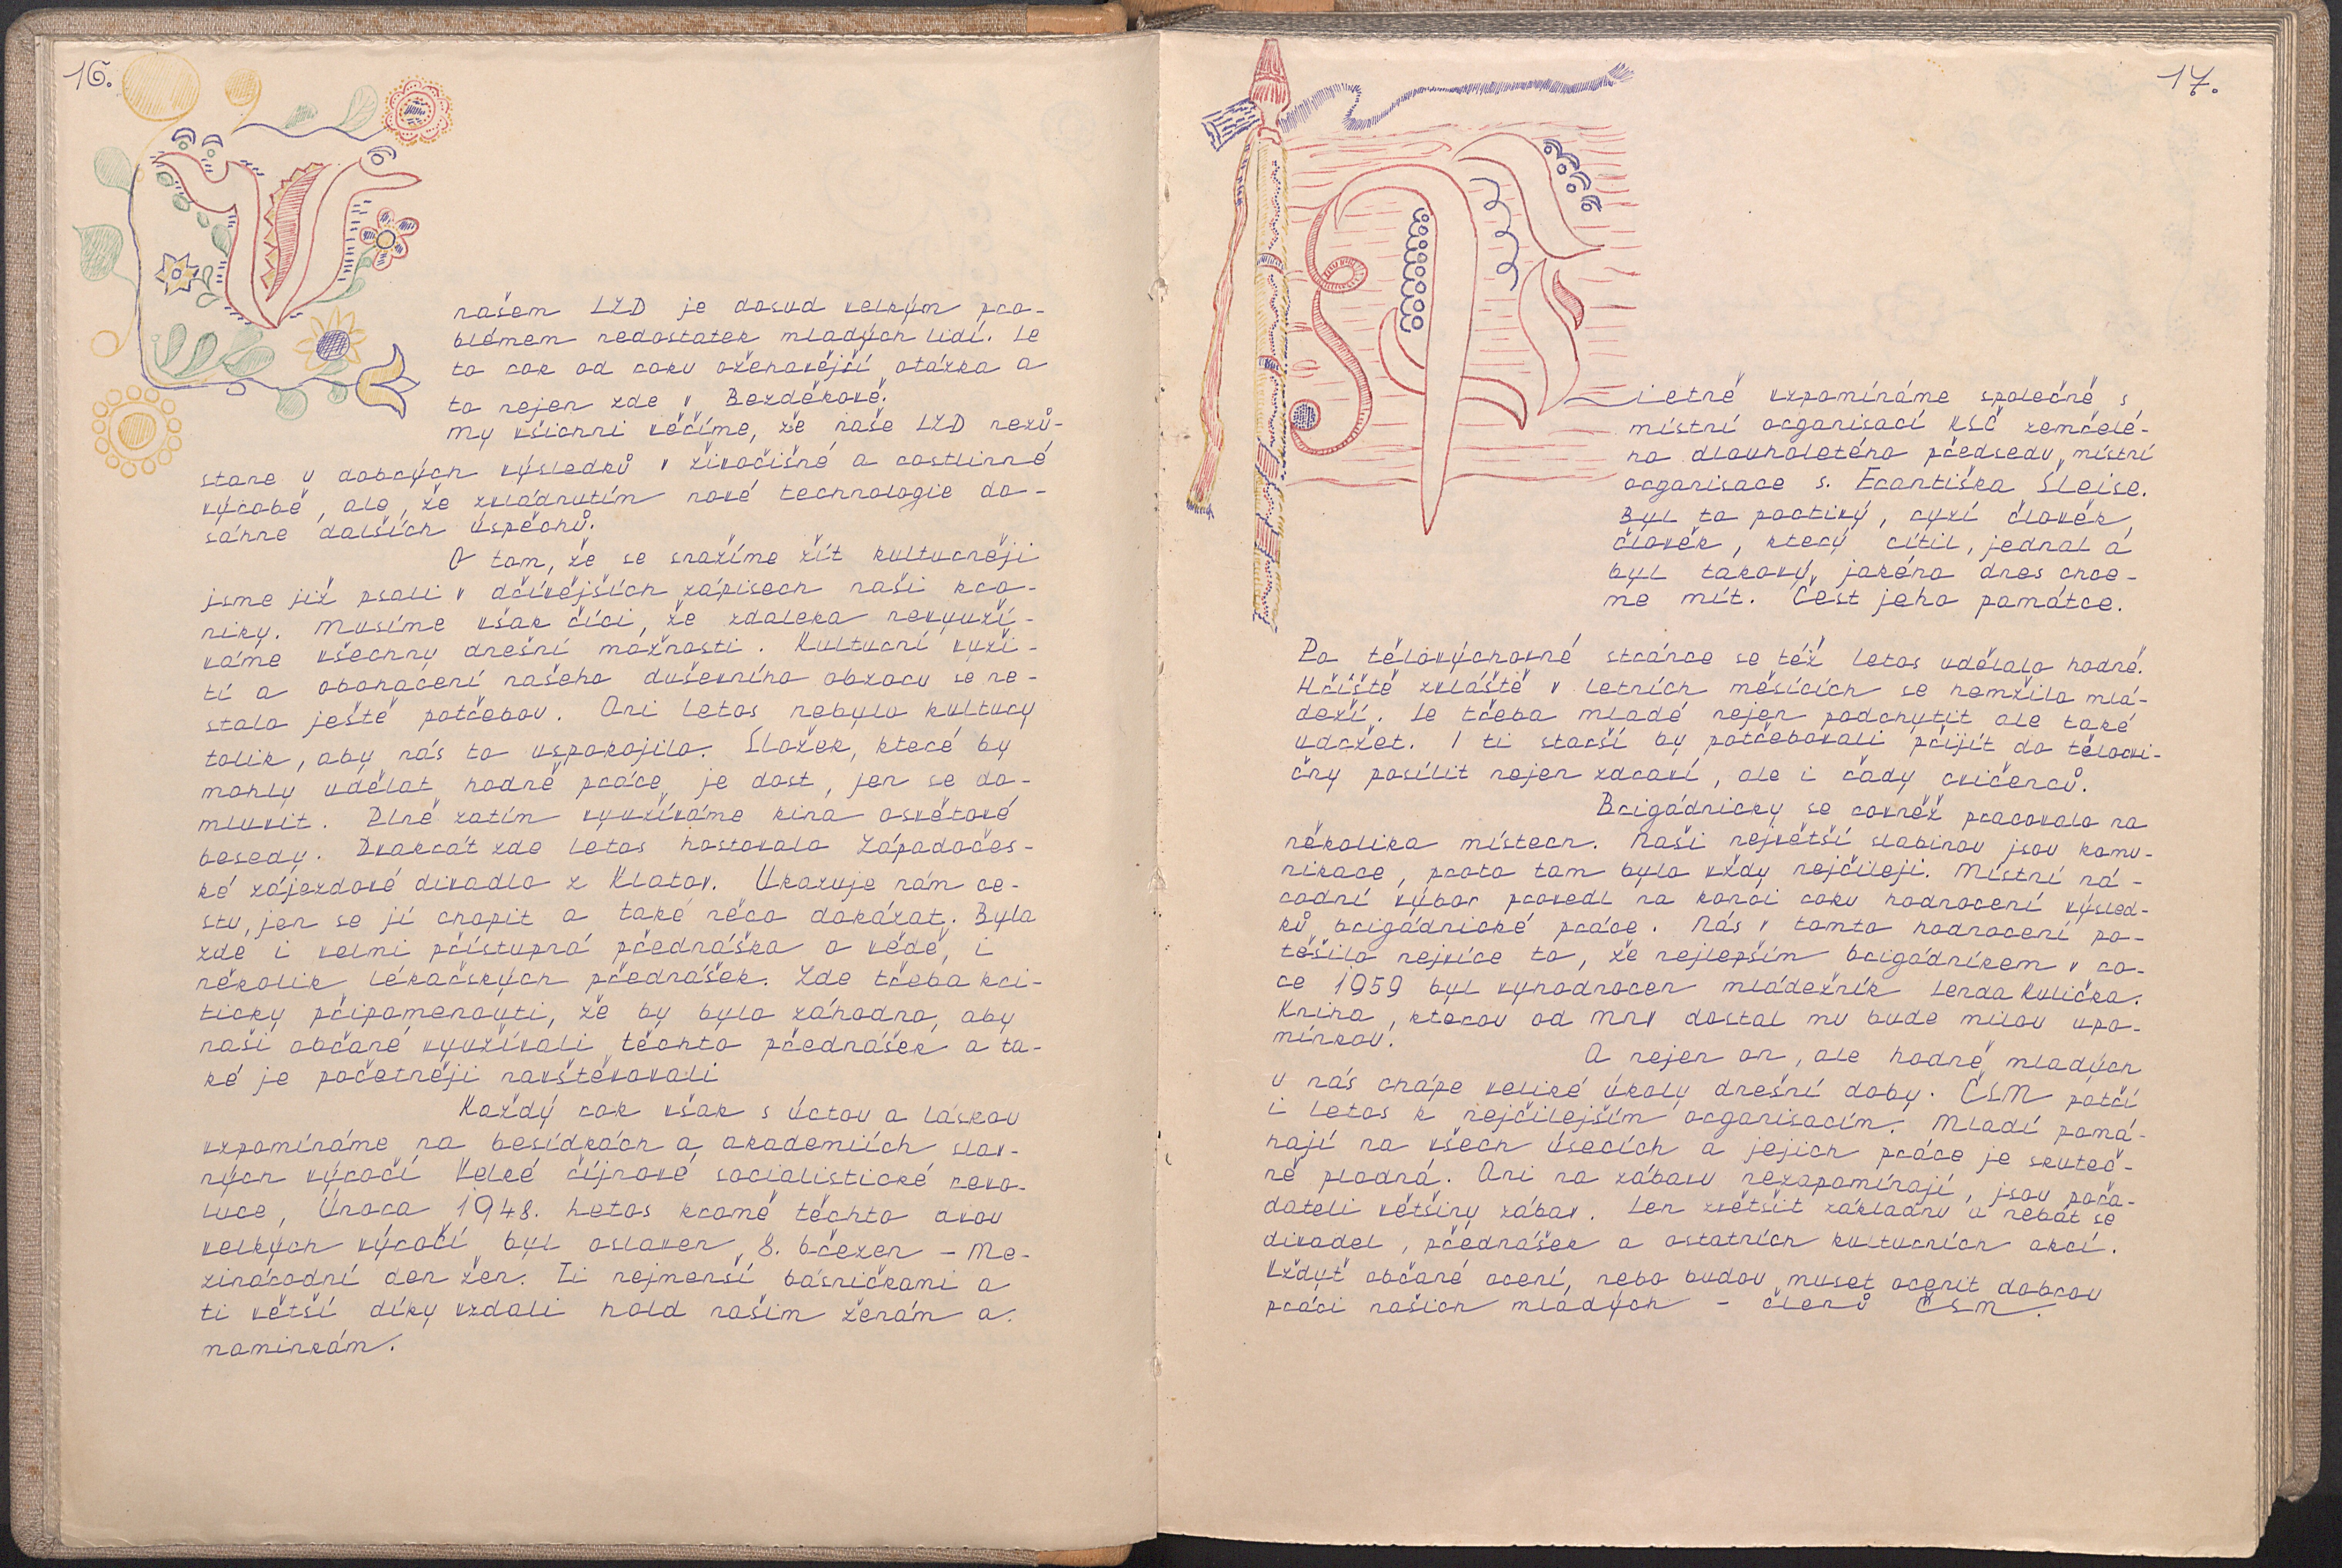 16.
V
našem JZD je dosud velkým pro-
blémem nedostatek mladých lidí. Je
to rok od roku ožehavější otázka a
to nejen zde v Bezděkově.
My všichni věříme, že naše JZD nezů-
stane u dobrých výsledků v živočišné a rostlinné
výrobě, ale, že zvládnutím nové technologie do-
sáhne dalších úspěchů.
O tom, že se snažíme žít kulturněji
jsme již psali v dřívějších zápisech naši kro-
niky. Musíme však říci, že zdaleka nevyuží-
váme všechny dnešní možnosti. Kulturní vyži-
tí a obohacení našeho duševního obzoru se ne-
stalo ještě potřebou. Ani letos nebylo kultury
tolik, aby nás to uspokojilo. Složek, které by
mohly udělat hodně práce je dost, jen se do-
mluvit. Plně zatím využíváme kina osvětové
besedy. Dvakrát zde letos hostovalo Západočes-
ké zájezdové divadlo z Klatov. Ukazuje nám ce-
stu, jen se jí chopit a také něco dokázat. Byla
zde i velmi přístupná přednáška o vědě, i
několik lékařských přednášek. Zde třeba kri-
ticky připomenouti, že by bylo záhodno, aby
naši občané využívali těchto přednášek a ta-
ké je početněji navštěvovali
Každý rok však s úctou a láskou
vzpomínáme na besídkách a akademiích slav-
ných výročí Velké říjnové socialistické revo-
luce, Února 1948. Letos kromě těchto dvou
velkých výročí byl oslaven 8. březen – Me-
zinárodní den žen. Ti nejmenší básničkami a
ti větší díky vzdali hold našim ženám a
maminkám.
17.
P
ietně vzpomínáme společně s
místní organisací KSČ zemřelé-
ho dlouholetého předsedu místní
organisace s. Františka Šlejse.
Byl to poctivý, ryzí člověk,
člověk, který cítil, jednal a
byl takový, jakého dnes chce-
me mít. Čest jeho památce.
Po tělovýchovné stránce se též letos udělalo hodně.
Hřiště zvláště v letních měsících se hemžilo mlá-
deží. Je třeba mladé nejen podchytit ale také
udržet. I ti starší by potřebovali přijít do tělocvi-
čny posílit nejen zdraví, ale i řady cvičenců.
Brigádnicky se rovněž pracovalo na
několika místech. Naší největší slabinou jsou komu-
nikace, proto tam bylo vždy nejčileji. Místní ná-
rodní výbor provedl na konci roku hodnocení výsled-
ků brigádnické práce. Nás v tomto hodnocení po-
těšilo nejvíce to, že nejlepším brigádníkem v ro-
ce 1959 byl vyhodnocen mládežník Jenda Kulička.
Kniha, kterou od MNV dostal mu bude milou upo-
mínkou.
A nejen on, ale hodně mladých
u nás chápe veliké úkoly dnešní doby. ČSM patří
i letos k nejčilejším organisacím. Mladí pomá-
hají na všech úsecích a jejich práce je skuteč-
ně plodná. Ani na zábavu nezapomínají, jsou pořa-
dateli většiny zábav. Jen zvětšit základnu a nebát se
divadel, přednášek a ostatních kulturních akcí.
Vždyť občané ocení, nebo budou muset ocenit dobrou
práci našich mladých – členů ČSM.